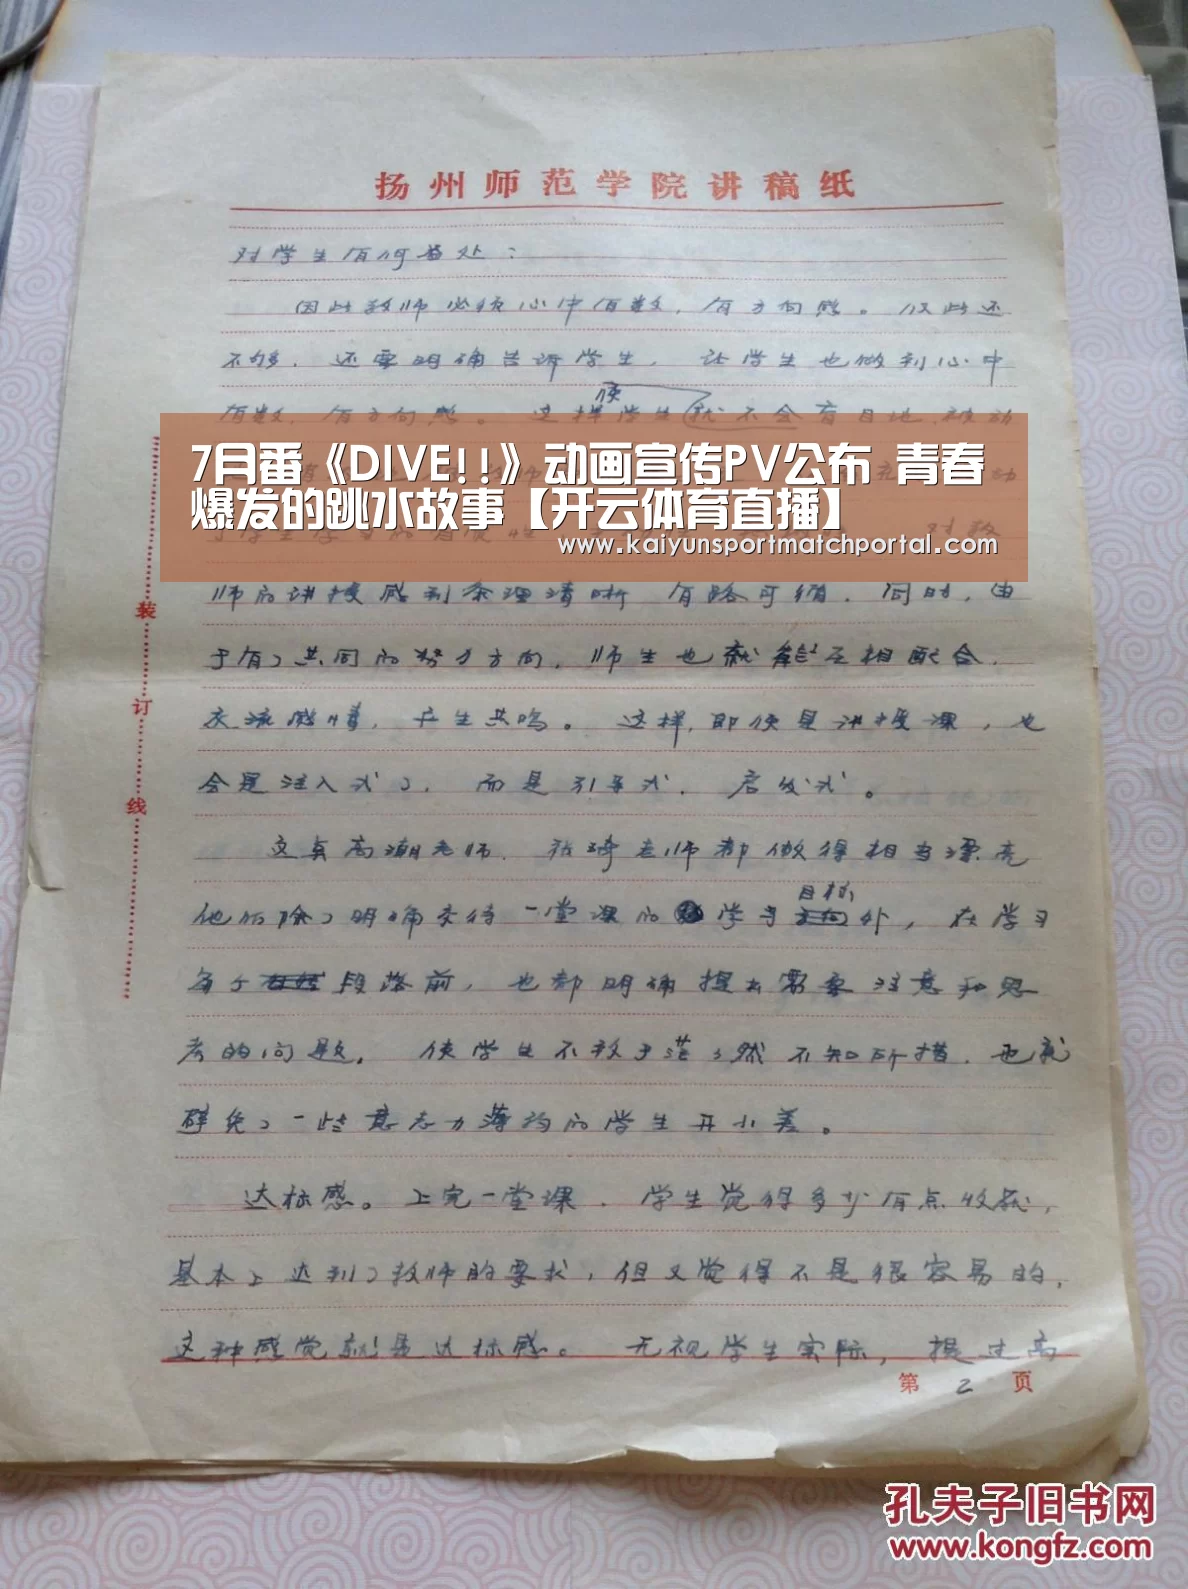 扬州师范学院讲稿纸
对学生有何益处：
因此教师必须心中有数，有方向感。仅此还
不够，还要明确告诉学生，让学生也做到心中
有数，有方向感。这样学生就不会盲目地被动
使
7月番《DIVE!!》动画宣传PV公布 青春
爆发的跳水故事【开云体育直播】
www.kaiyunsportmatchportal.com
对教
师的讲授感到条理清晰 有路可循。同时，由
于有了共同的努力方向，师生也就能互相配合，
交流感情，产生共鸣。这样，即使是讲授课，也
会是注入式了，而是引导式，启发式。
这真高潮老师、张琦老师都做得相当漂亮
目标
他们除了明确交待一堂课的学习外，在学习
每个段落前，也都明确提出需要注意和思
考的问题。使学生不致于茫茫然不知所措，也就
避免了一些意志力薄弱的学生开小差。
达标感。上完一堂课，学生觉得多少有点收获，
基本上达到了教师的要求，但又觉得不是很容易的，
这种感觉就是达标感。无视学生实际，提过高
第2页
装
订
线
孔夫子旧书网
www.kongfz.com